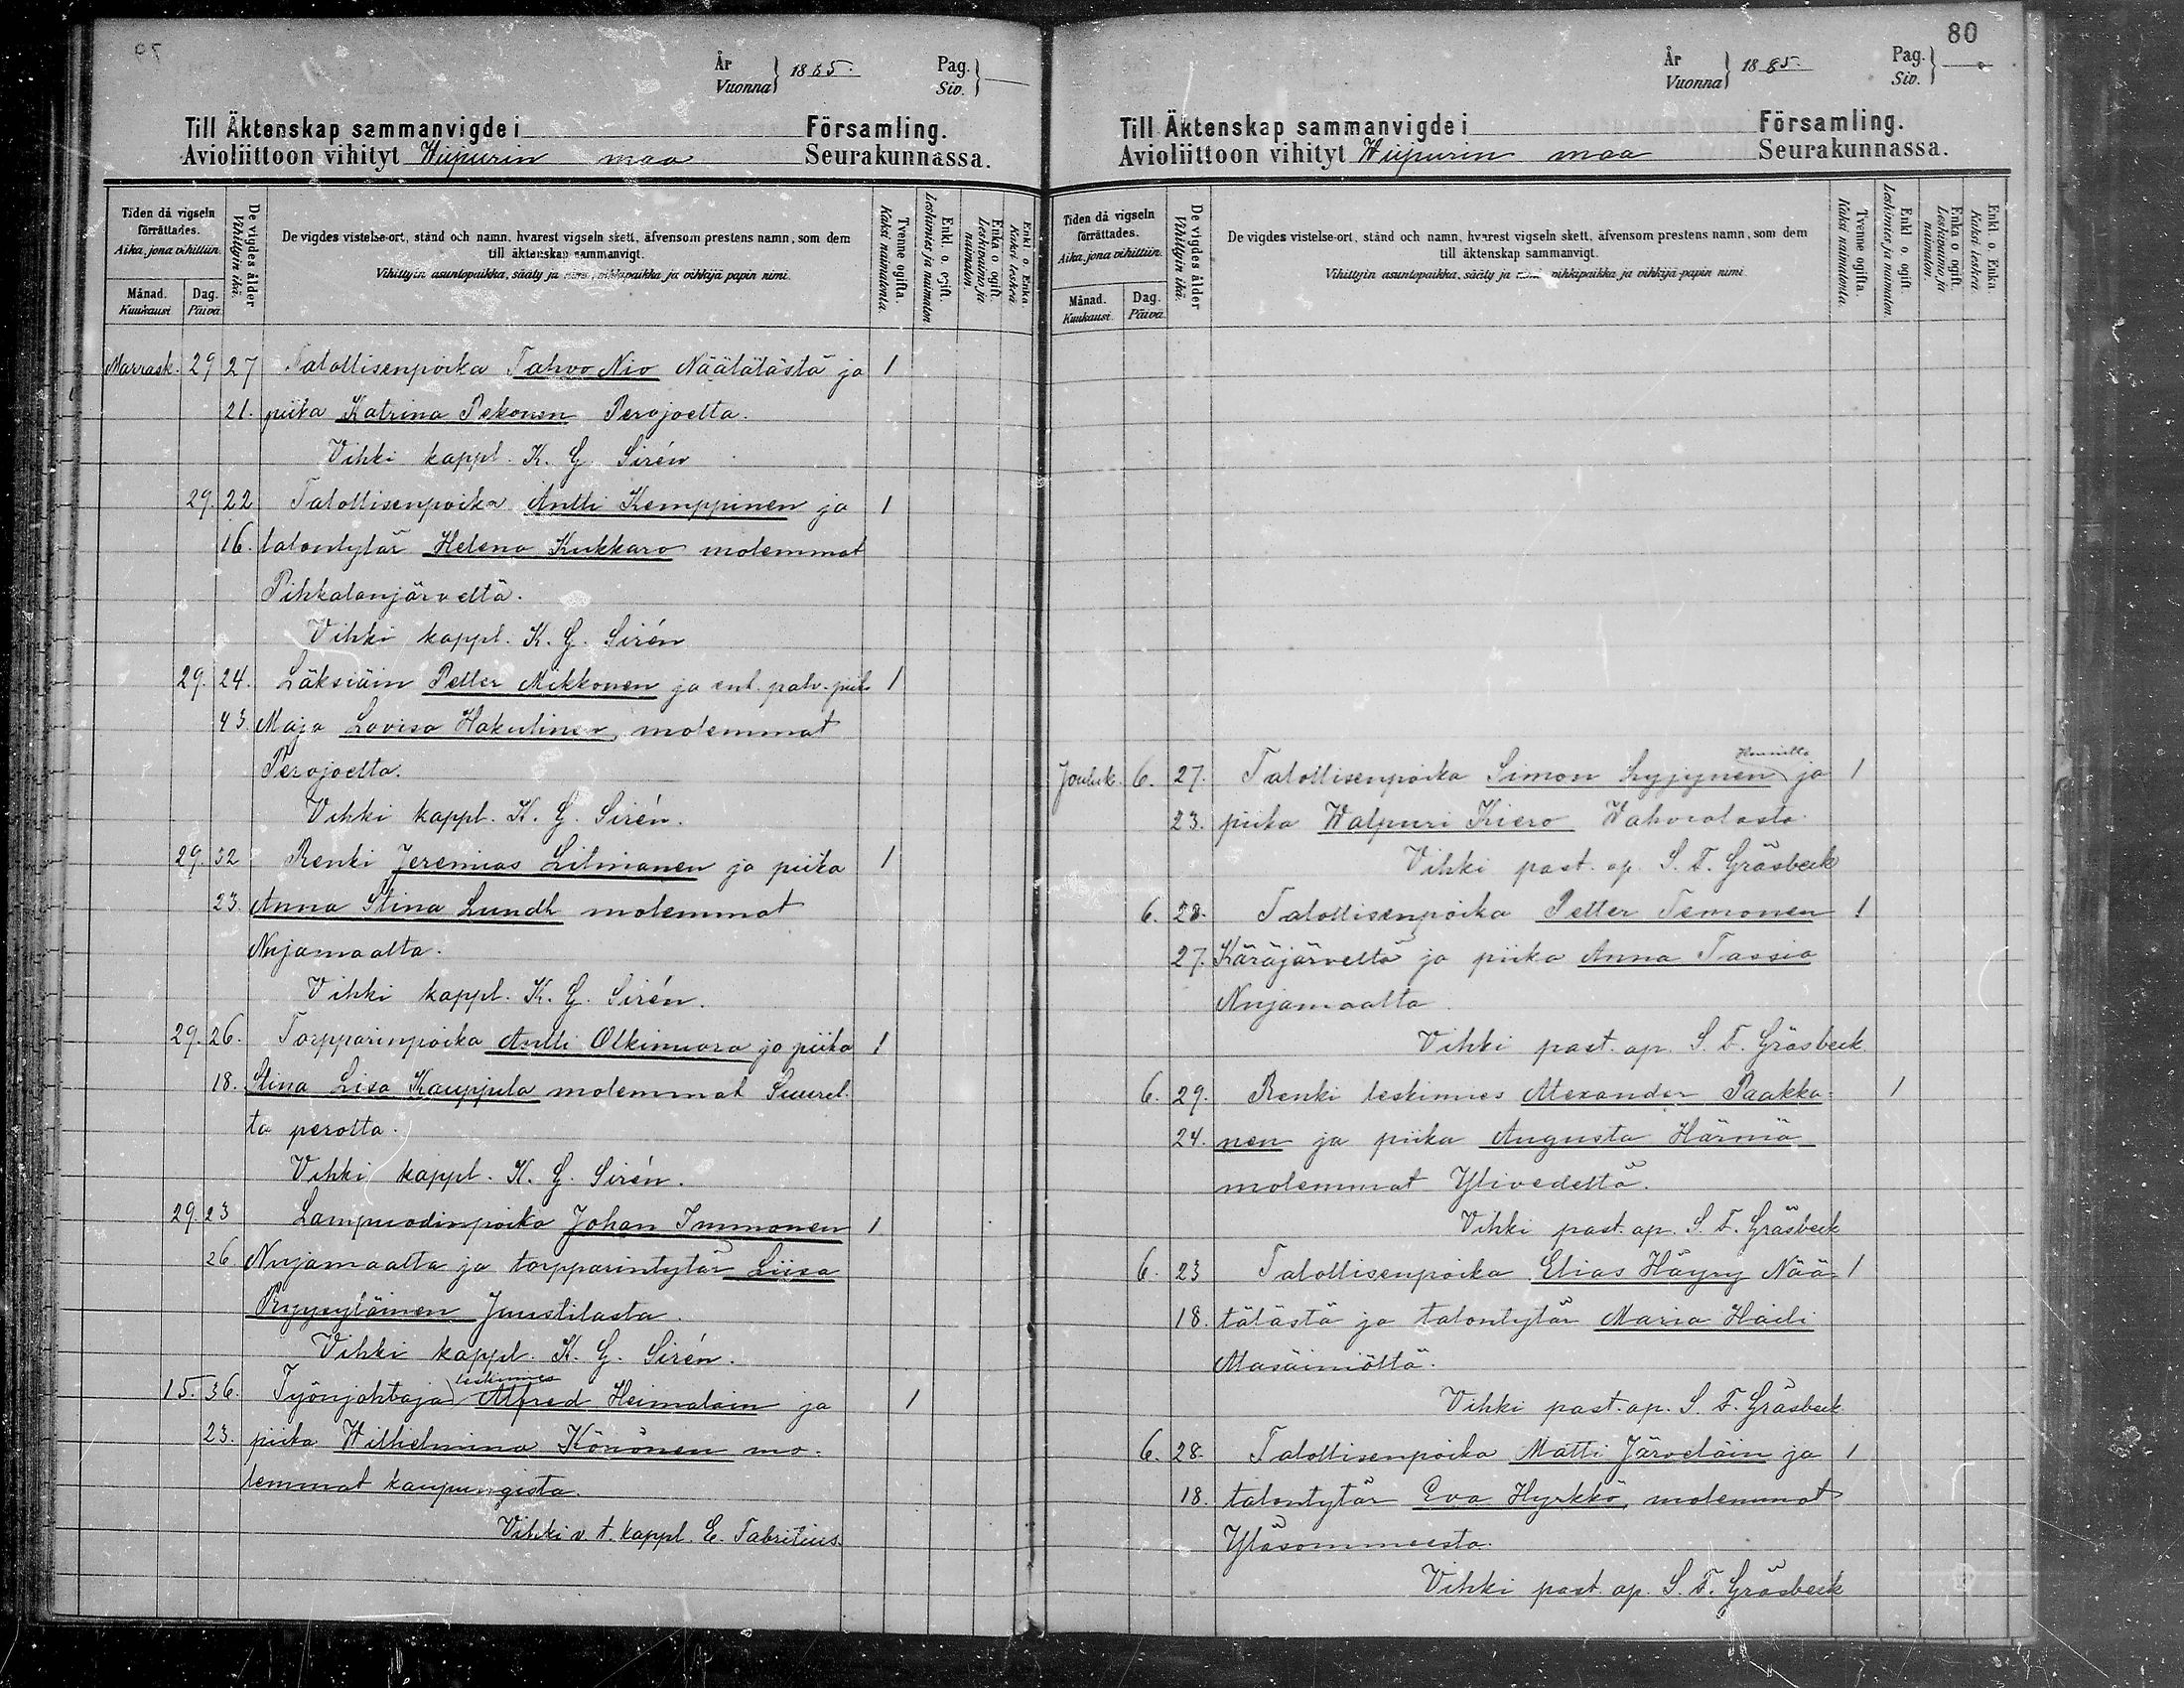 År
Vuonna } 1885.
Pag.
Siv. }
Till Äktenskap sammanvigde i Församling.
Avioliittoon vihityt Wiipurin maa Seurakunnassa.
Tiden då vigseln förrättades.
Aika, jona vihittiin.
Månad. Kuukausi
Dag. Päivä
De vigdes ålder
Vihittyin ikä.
De vigdes vistelse-ort, stånd och namn, hvarest vigseln skett, äfvensom prestens namn, som dem
till äktenskap sammanvigt.
Vihittyin asuntopaikka, sääty ja nimi, vihkipaikka ja vihkijä papin nimi.
Tvenne ogifta.
Kaksi naimatonta.
Enkl. o. ogift.
Leskimies ja naimaton
Enka o ogift.
Leskivaimo ja naimaton
Enkl. o. Enka.
Kaksi leskeä.
Marrask. 29 27 Talollisenpoika Tahvo Nio Näätälästä ja 1
21. piika Katrina Pekonen Perojoelta.
Vihki kappl. K. G. Sirén
29. 22 Talollisenpoika Antti Kemppinen ja 1
16. talontytär Helena Kukkaro molemmat
Pihkalanjärveltä.
Vihki kappl. K. G. Sirén
29. 24. Läksiäin Petter Mikkonen ja ent. palv. piik. 1
43. Maja Lovisa Hakulinen, molemmat
Perojoelta.
Vihki kappl. K. G. Sirén.
29. 32 Renki Jeremias Litmanen ja piika 1
23. Anna Stina Lundh molemmat
Nujamaalta.
Vihki kappl. K. G. Sirén.
29. 26. Torpparinpoika Antti Olkinuora ja piika 1
18. Stina Lisa Kauppila molemmat Suurel-
ta perolta.
Vihki kappl. K. G. Sirén.
29. 23 Lampuodinpoika Johan Immonen 1
26 Nujamaalta ja torpparintytär Liisa
Pyyryläinen Juustilasta.
Vihki kappl. K. G. Sirén.
leskimies
15. 36. Työnjohtaja Alfred Heimalain ja 1
23. piika Wilhelmina Könönen mo-
lemmat kaupungista.
Vihki v. t. kappl. E. Fabritius.
80
År
Vuonna } 1885.
Pag.
Siv. }
Till Äktenskap sammanvigde i Församling.
Avioliittoon vihityt Wiipurin maa Seurakunnassa.
Tiden då vigseln förrättades.
Aika, jona vihittiin.
Månad. Kuukausi
Dag. Päivä
De vigdes ålder
Vihittyin ikä.
De vigdes vistelse-ort, stånd och namn, hvarest vigseln skett, äfvensom prestens namn, som dem
till äktenskap sammanvigt.
Vihittyin asuntopaikka, sääty ja nimi, vihkipaikka ja vihkijä papin nimi.
Tvenne ogifta.
Kaksi naimatonta.
Enkl. o. ogift.
Leskimies ja naimaton
Enka o ogift.
Leskivaimo ja naimaton.
Enkl. o. Enka.
Kaksi leskeä.
Jouluk. 6. 27. Talollisenpoika Simon Lyijynen ja 1
23. piika Walpuri Kiero Wahvialasta.
Vihki past. ap. S. F. Gräsbeck
6. 28. Talollisenpoika Petter Temonen 1
27. Käräjärveltä ja piika Anna Tassia
Nujamaalta
Vihki past. ap. S. F. Gräsbeck.
6. 29. Renki leskimies Alexander Paakka- 1
24. nen ja piika Augusta Härmä
molemmat Ylivedeltä.
Vihki past. ap. S. F. Gräsbeck
6. 23 Talollisenpoika Elias Häyry Nää- 1
18. tälästä ja talontytär Maria Haili
Alasäiniöltä.
Vihki past. ap. S. F. Gräsbeck
6. 28. Talollisenpoika Matti Järveläin ja 1
18. talontytär Eva Hyrkkö, molemmat
Yläsommeesta.
Vihki past. ap. S. F. Gräsbeck